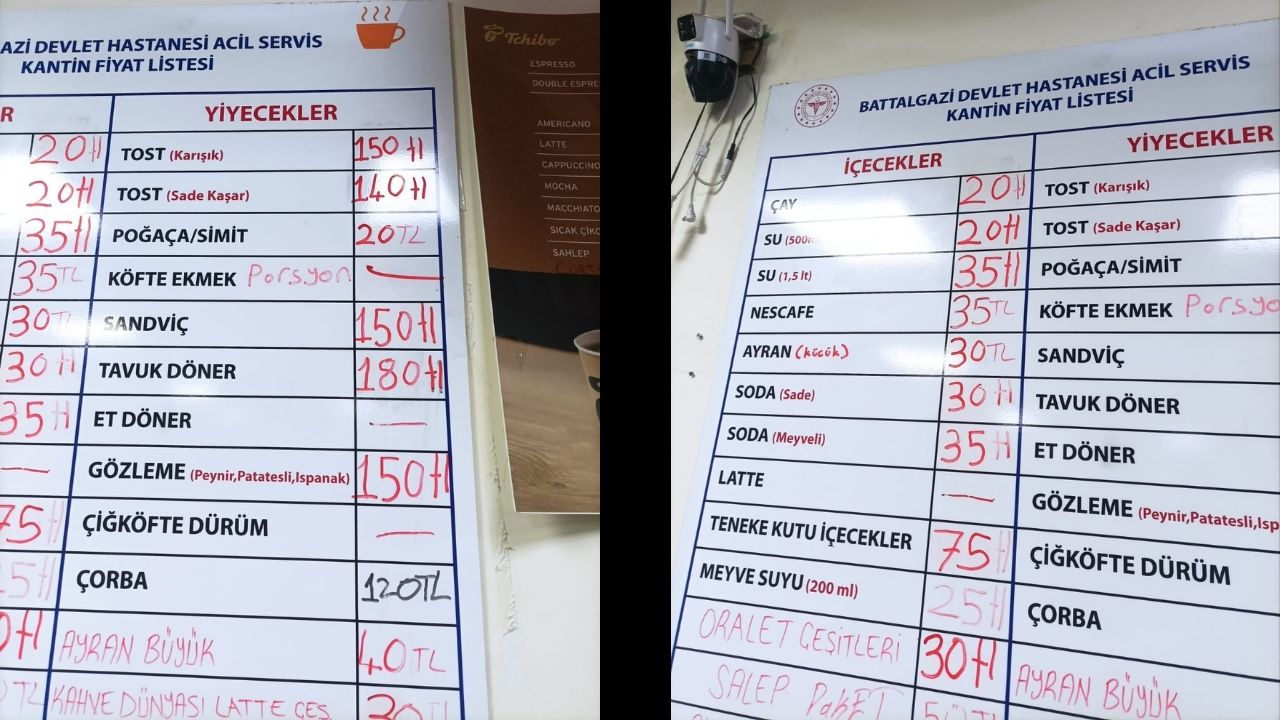 GAZİ DEVLET HASTANESİ ACİL SERVİS
KANTİN FİYAT LİSTESİ
R YİYECEKLER
20tl TOST (Karışık) 150tl
20tl TOST (Sade Kaşar) 140tl
35tl POĞAÇA/SİMİT 20TL
35TL KÖFTE EKMEK Porsyon —
30TL SANDVİÇ 150tl
30tl TAVUK DÖNER 180tl
35tl ET DÖNER —
— GÖZLEME (Peynir,Patatesli,Ispanak) 150tl
75tl ÇİĞKÖFTE DÜRÜM —
25tl ÇORBA 120TL
0tl AYRAN BÜYÜK 40TL
0TL KAHVE DÜNYASI LATTE ÇEŞ
Tchibo
ESPRESSO
DOUBLE ESPRE
AMERICANO
LATTE
CAPPUCCINO
MOCHA
MACCHIATO
SICAK ÇİKO
SAHLEP
BATTALGAZİ DEVLET HASTANESİ ACİL SERVİS
KANTİN FİYAT LİSTESİ
İÇECEKLER YİYECEKLER
ÇAY 20tl TOST (Karışık)
SU (500m 20tl TOST (Sade Kaşar)
SU (1,5 lt) 35tl POĞAÇA/SİMİT
NESCAFE 35TL KÖFTE EKMEK Porsyo
AYRAN (küçük) 30TL SANDVİÇ
SODA (Sade) 30tl TAVUK DÖNER
SODA (Meyveli) 35tl ET DÖNER
LATTE — GÖZLEME (Peynir,Patatesli,Isp
TENEKE KUTU İÇECEKLER 75tl ÇİĞKÖFTE DÜRÜM
MEYVE SUYU (200 ml) 25tl ÇORBA
ORALET ÇEŞİTLERİ 30tl AYRAN BÜYÜK
SALEP PAKET 50TL